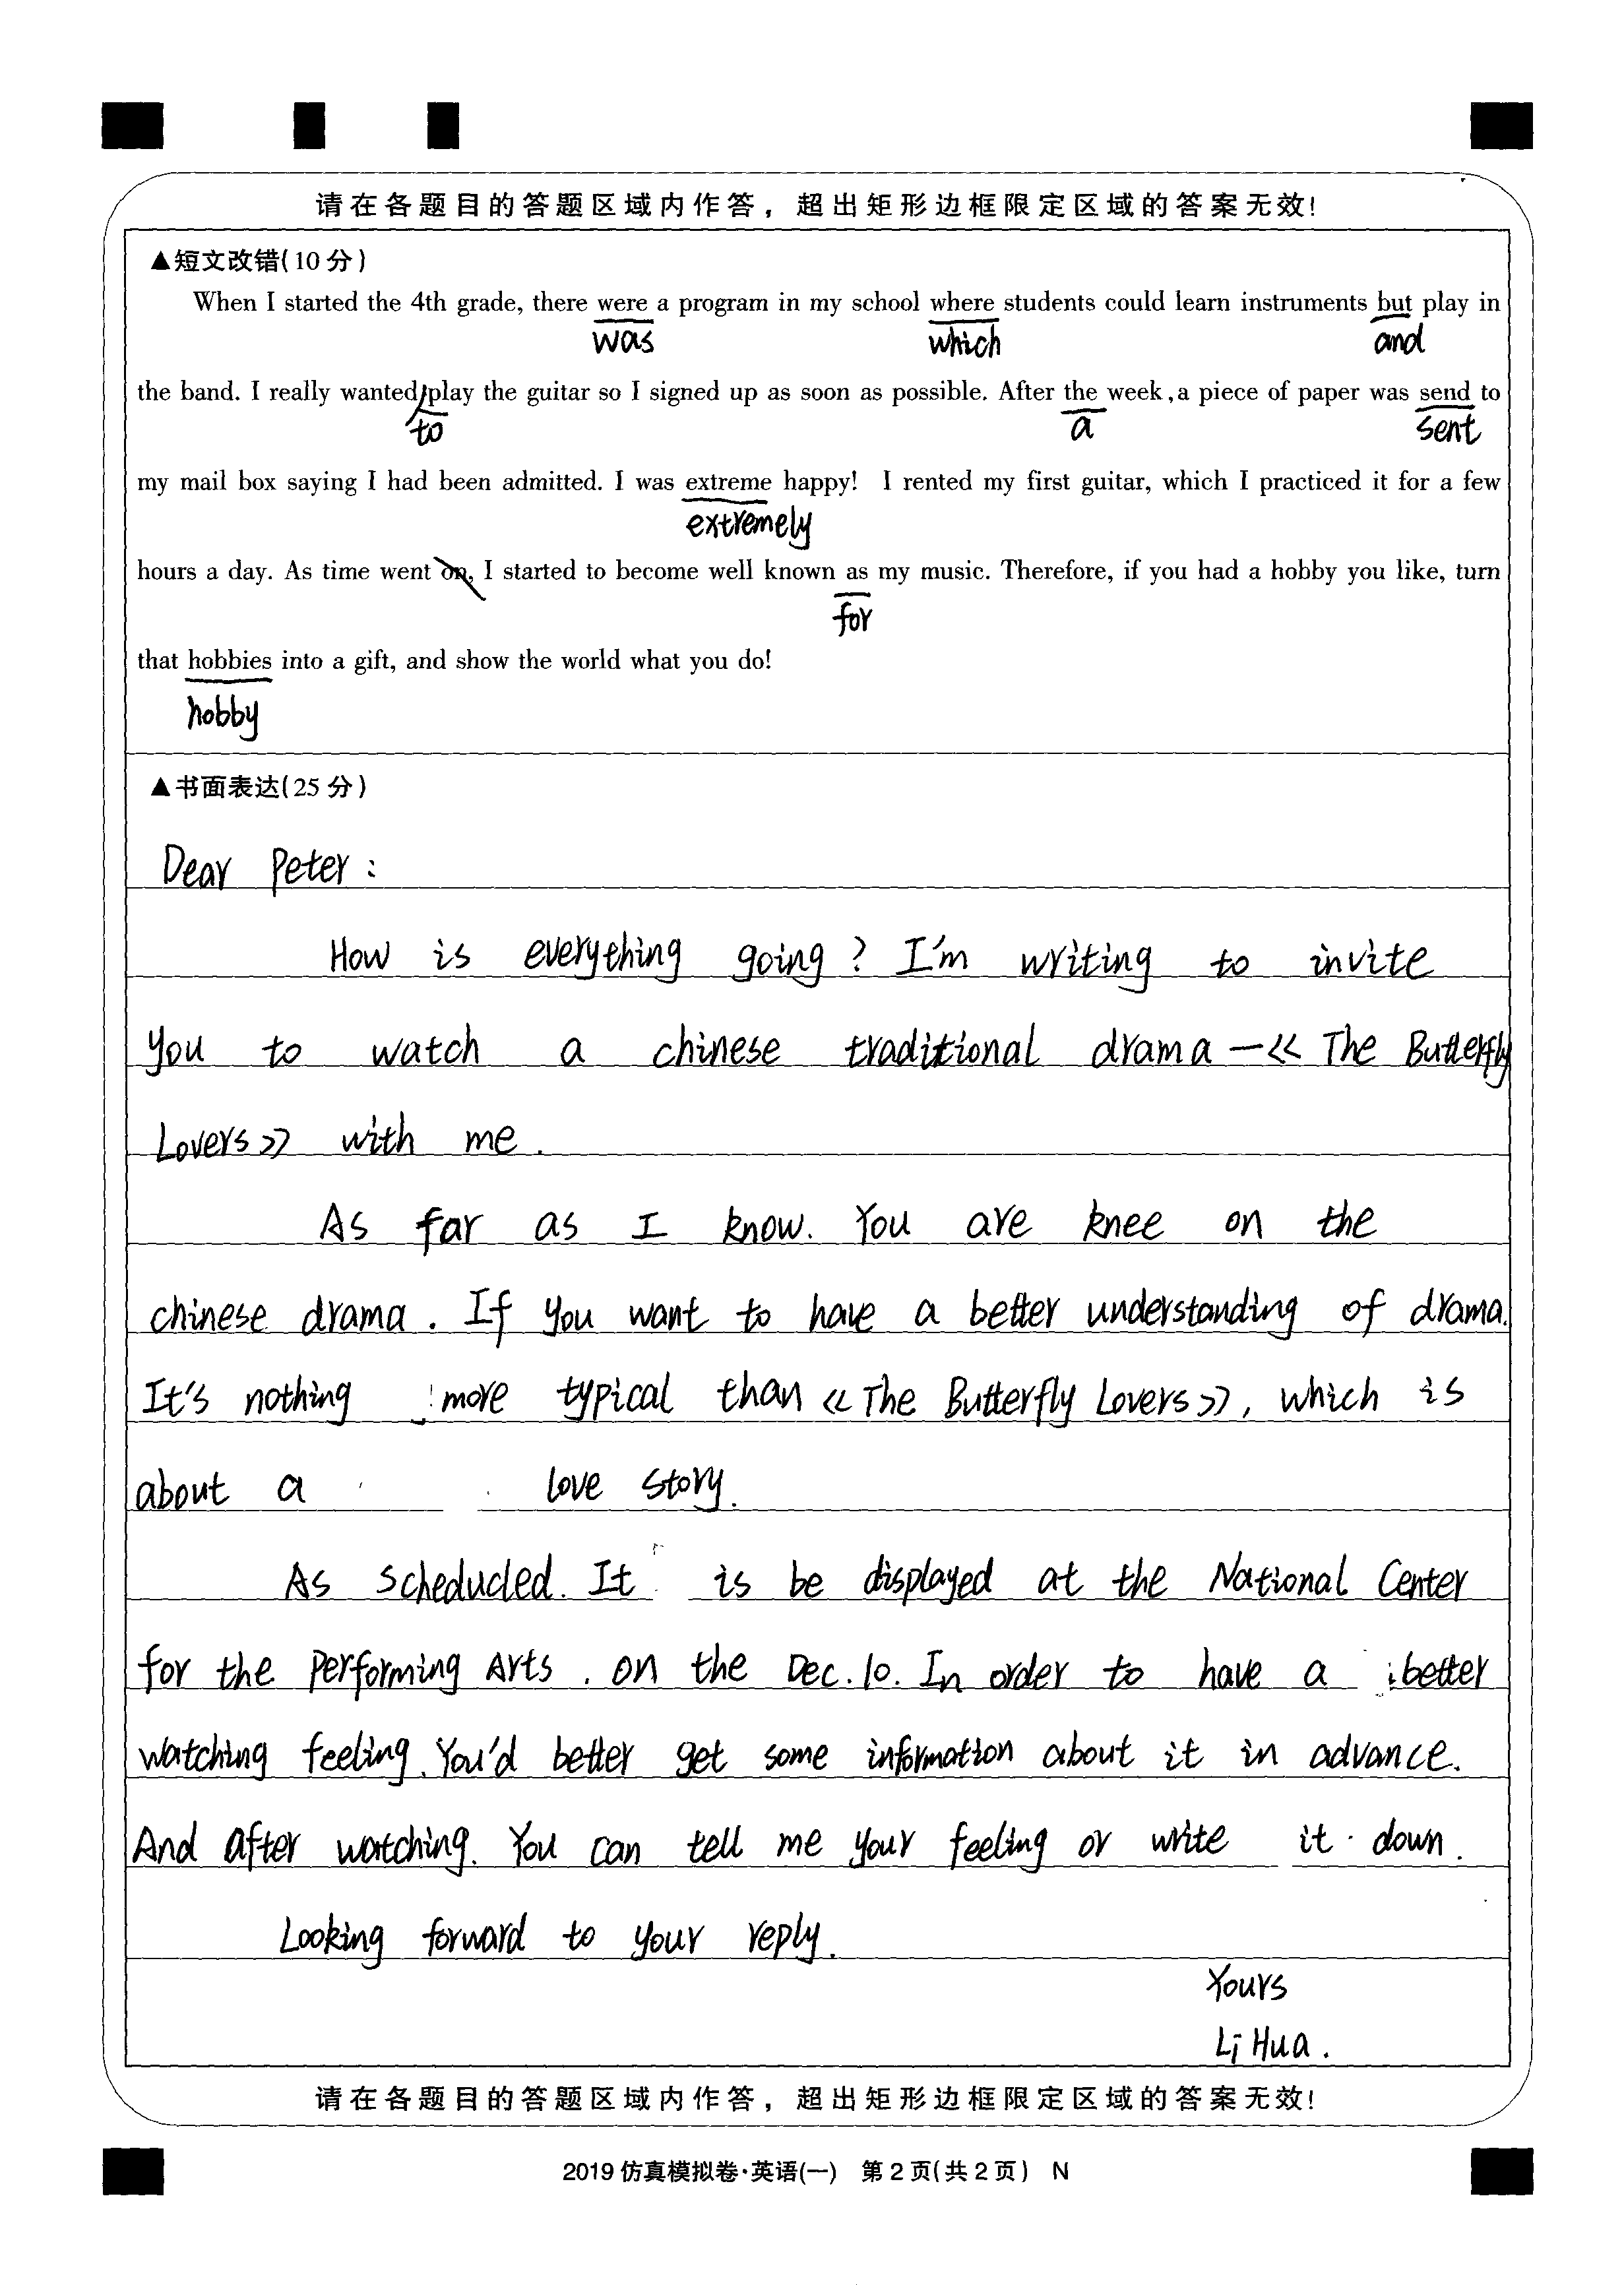 请在各题目的答题区域内作答，超出矩形边框限定区域的答案无效!
▲短文改错(10分)
When I started the 4th grade, there were a program in my school where students could learn instruments but play in
was which and
the band. I really wanted play the guitar so I signed up as soon as possible. After the week, a piece of paper was send to
to a sent
my mail box saying I had been admitted. I was extreme happy! I rented my first guitar, which I practiced it for a few
extremely
hours a day. As time went on, I started to become well known as my music. Therefore, if you had a hobby you like, turn
for
that hobbies into a gift, and show the world what you do!
hobby
▲书面表达(25分)
Dear Peter:
How is everything going? I'm writing to invite
you to watch a chinese traditional drama—《The Butterfly
Lovers》 with me.
As far as I know. You are knee on the
chinese drama. If you want to have a better understanding of drama.
It's nothing more typical than 《The Butterfly Lovers》, which is
about a love story.
As scheducled. It is be displayed at the National Center
for the Performing Arts. on the Dec.10. In order to have a better
watching feeling. You'd better get some information about it in advance.
And after watching. You can tell me your feeling or write it down.
Looking forward to your reply.
Yours
Li Hua.
请在各题目的答题区域内作答，超出矩形边框限定区域的答案无效!
2019仿真模拟卷·英语(一) 第2页(共2页) N